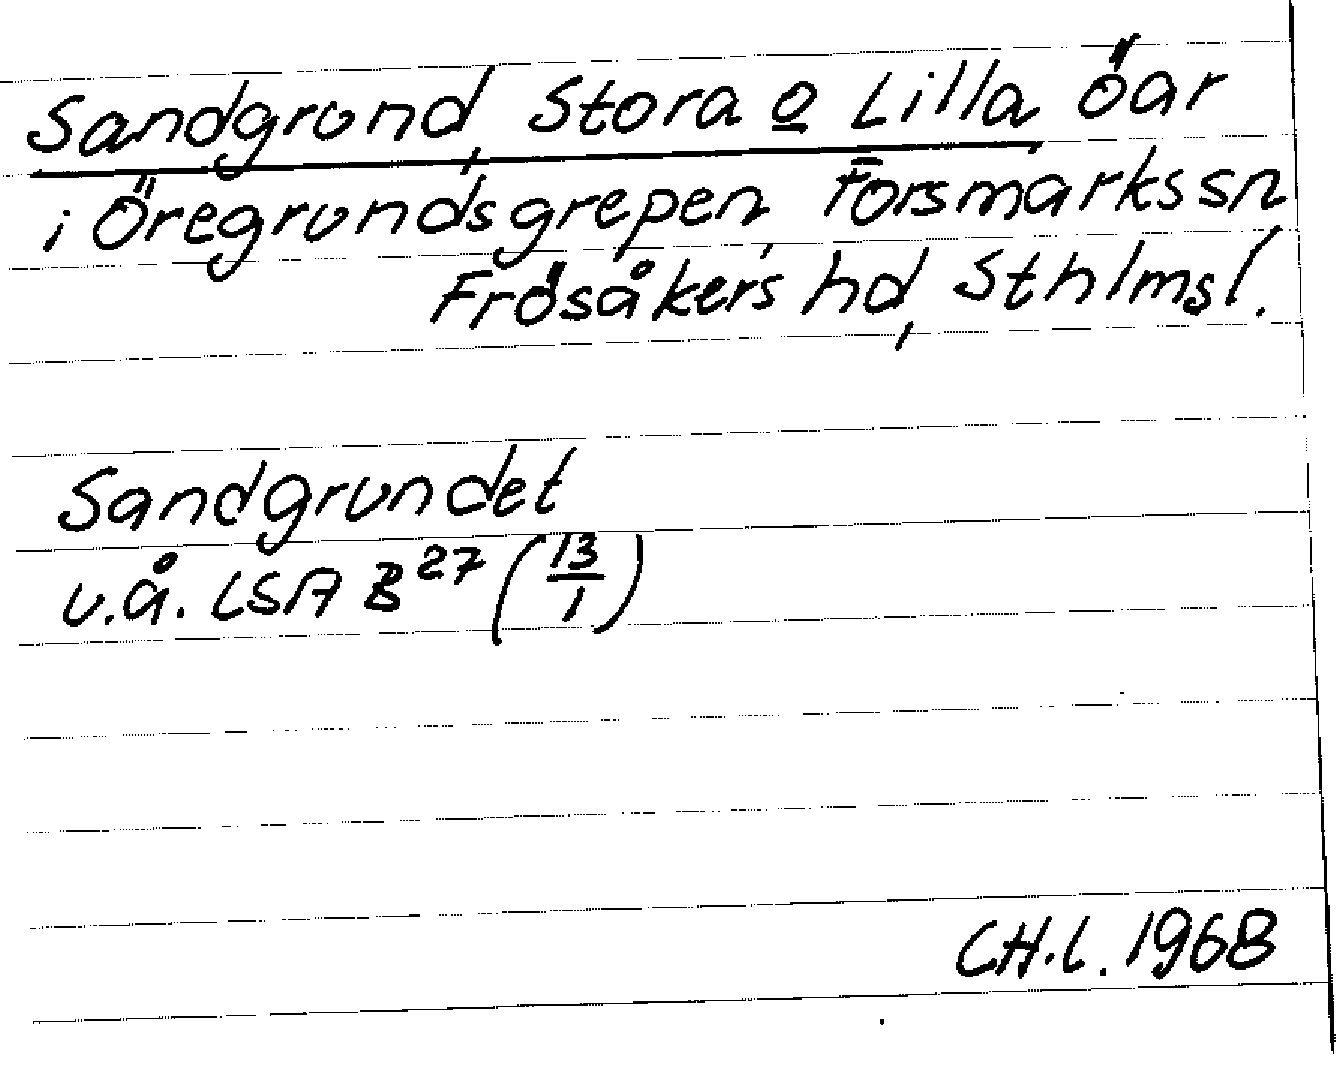 Sandgrund, Stora o Lilla, öar
i Öregrundsgrepen, Forsmarks sn
Frösåkers hd, Sthlms l.
Sandgrundet
u.å. LSA B 27 (13/1)
CH.L. 1968